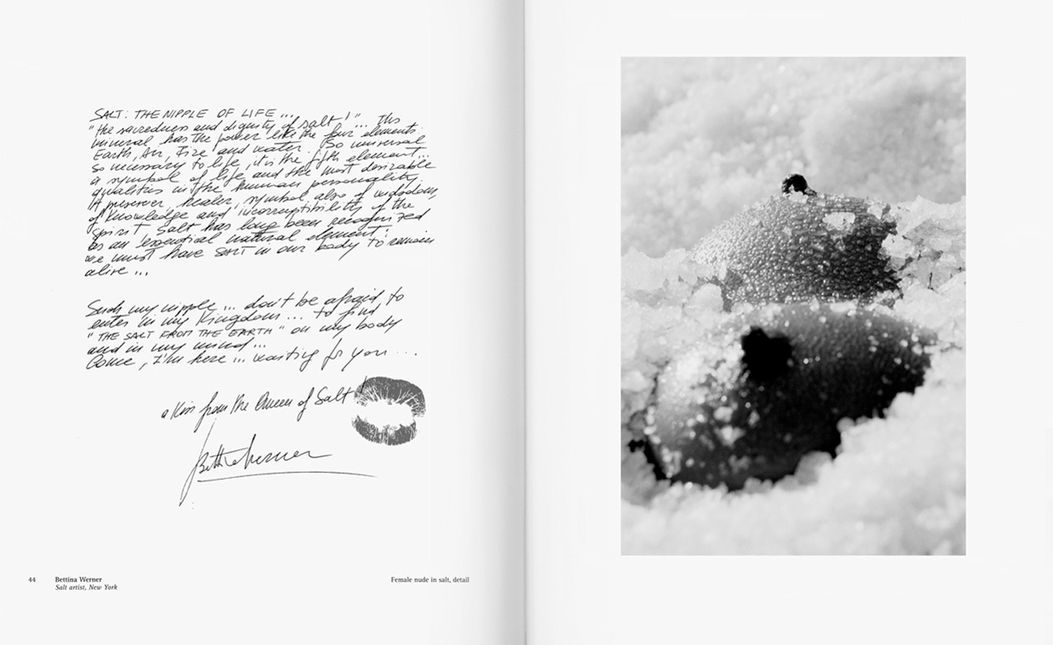 SALT: THE NIPPLE OF LIFE...
"the sacredness and dignity of salt!"... This
mineral has the power like the four elements:
Earth, Air, Fire and water. So universal
so necessary to life, it is the fifth element...
a symbol of life and the most desirable
qualities in the human personality.
A preserver, healer, symbol also of wisdom,
of knowledge and incorruptibility of the
spirit. Salt has long been recognized
as an essential natural element:
we must have salt in our body to remain
alive...
Suck my nipple... don't be afraid to
enter in my Kingdom... to find
"THE SALT FROM THE EARTH" on my body
and in my mind...
Come, I'm here... waiting for you....
a kiss from the Queen of Salt!
Bettina Werner
44
Bettina Werner
Salt artist, New York
Female nude in salt, detail